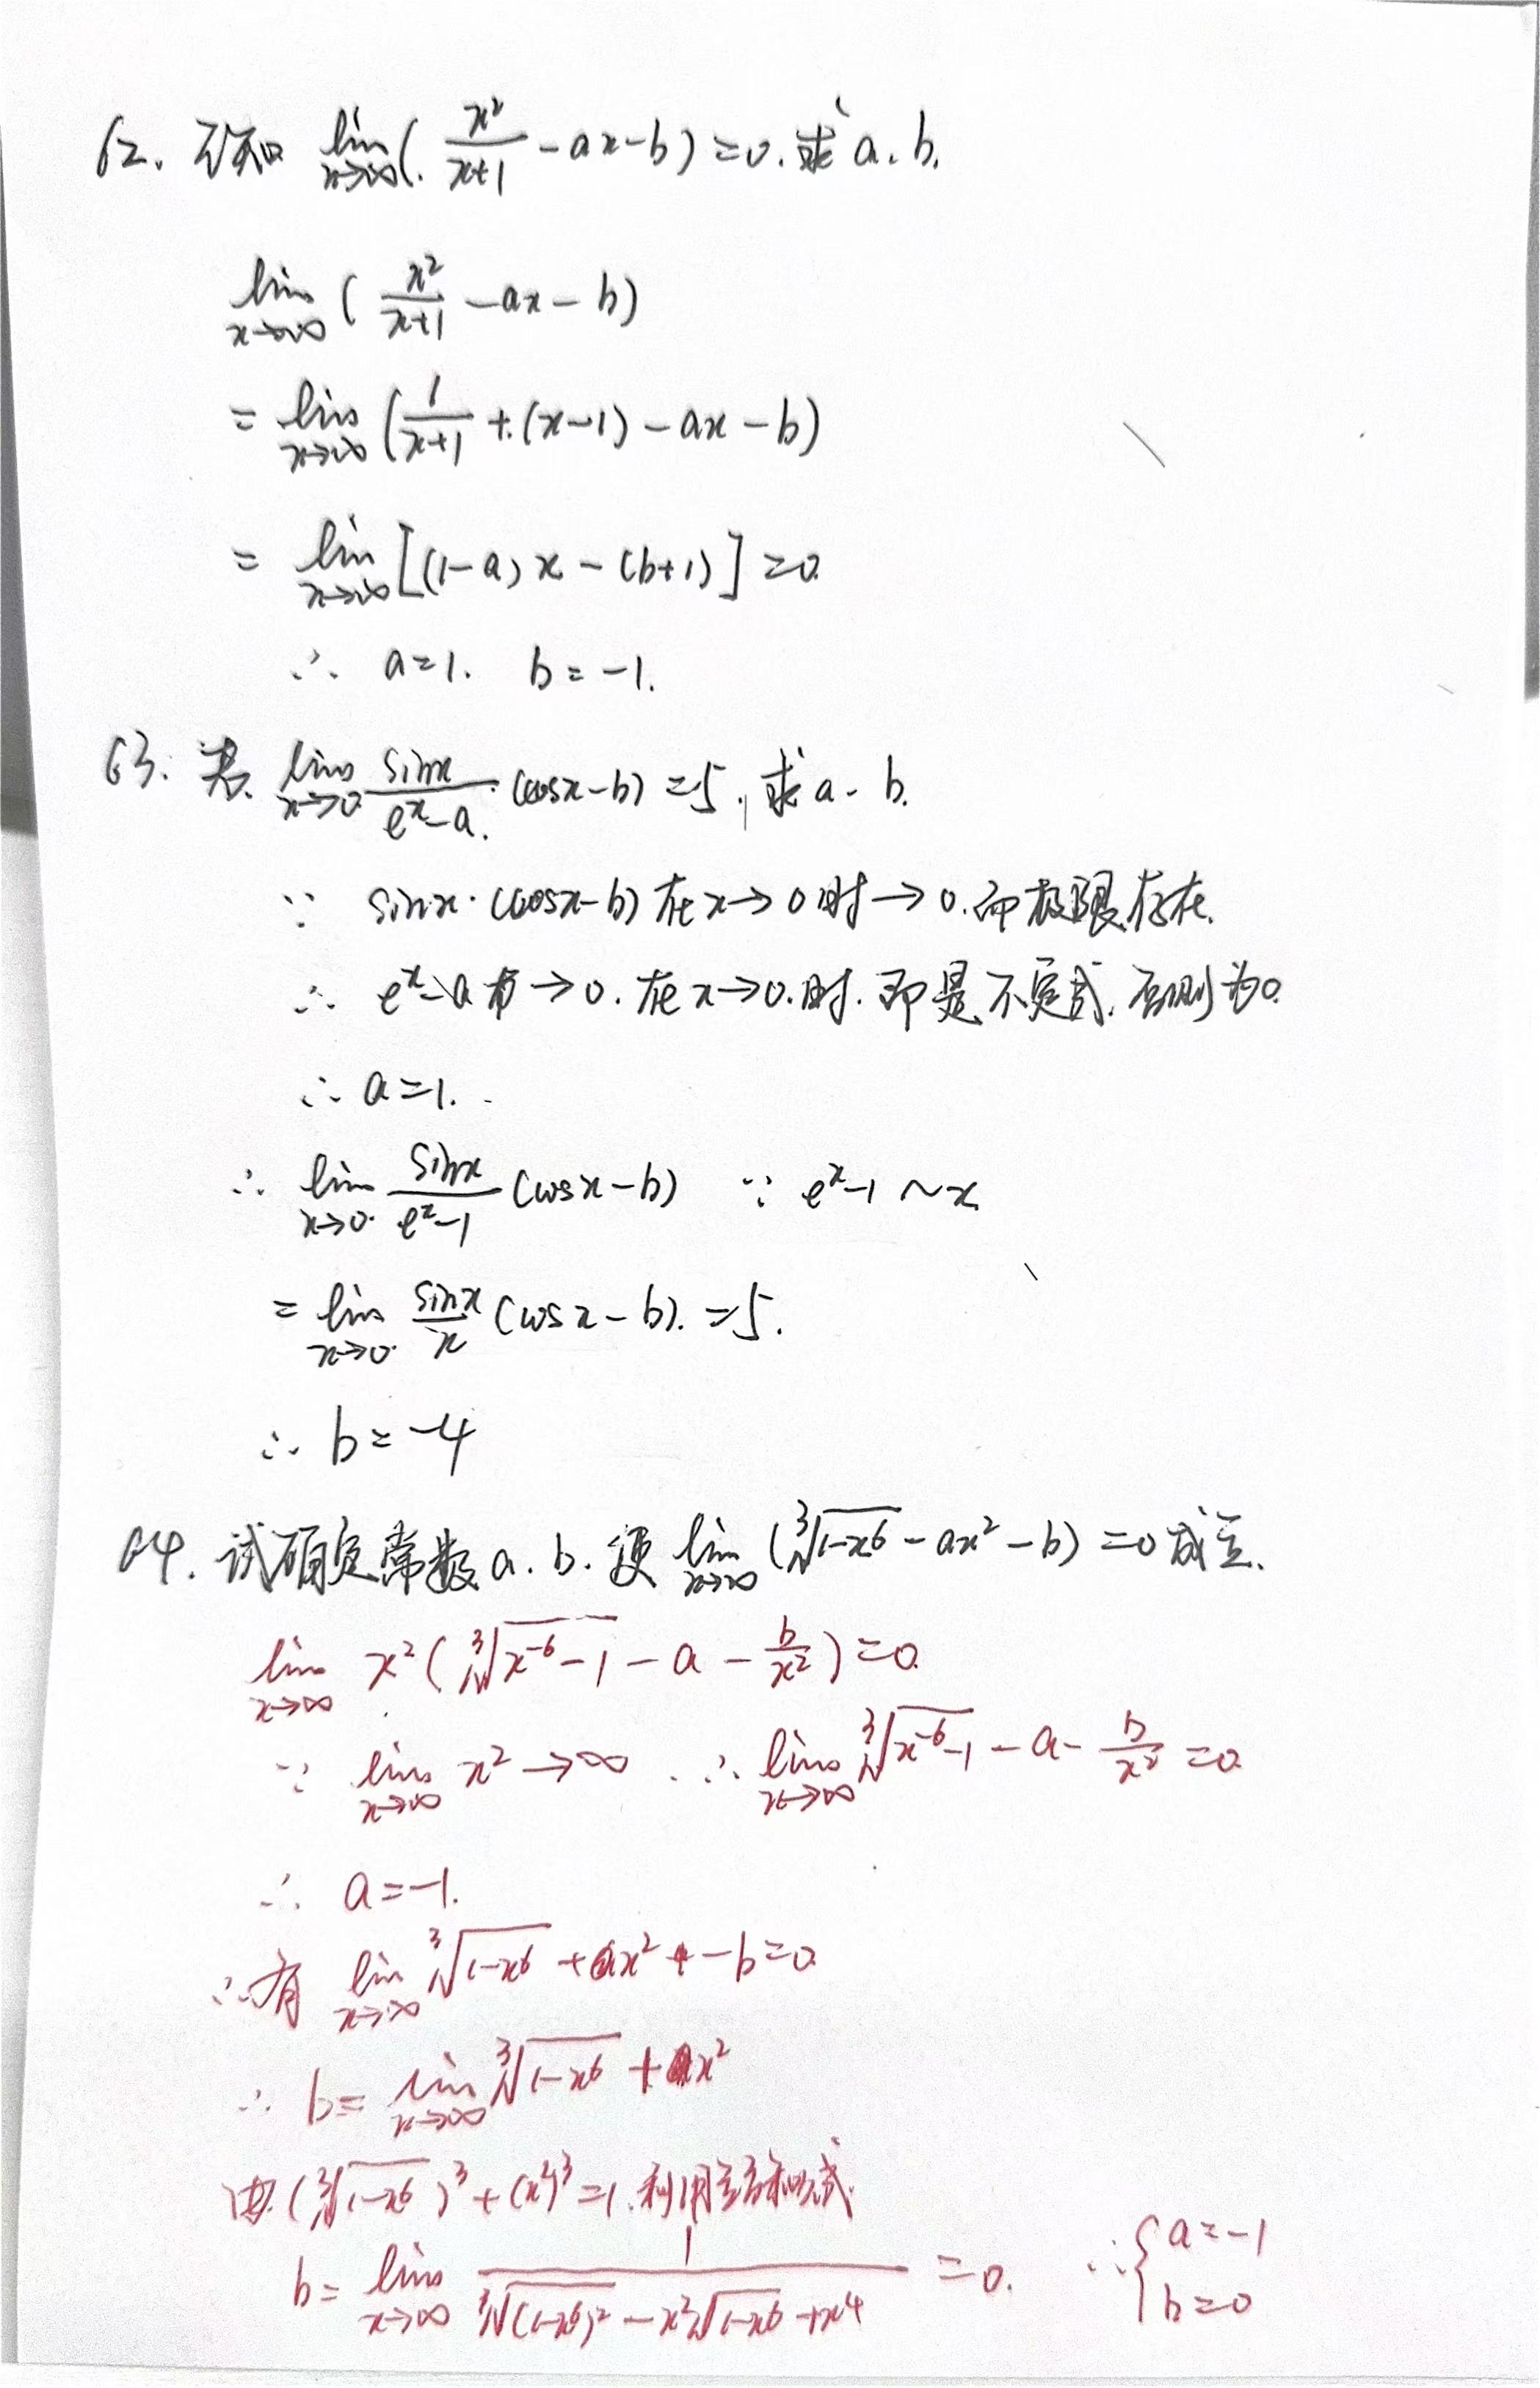 62. 已知 lim x→∞ (x²/(x+1) - ax - b) = 0. 求 a. b.
lim x→∞ (x²/(x+1) - ax - b)
= lim x→∞ (1/(x+1) + (x-1) - ax - b)
= lim x→∞ [(1-a)x - (b+1)] = 0.
∴ a=1. b=-1.
63. 若 lim x→0 sinx/(e^x - a) · (cosx-b) = 5, 求 a. b.
∵ sinx·(cosx-b) 在 x→0 时 →0. 而极限存在.
∴ e^x-a →0. 在 x→0. 时. 即是不定式. 否则为0.
∴ a=1.
∴ lim x→0 sinx/(e^x-1) (cosx-b) ∵ e^x-1 ~ x
= lim x→0 sinx/x (cosx-b). = 5.
∴ b=-4
64. 试确定常数 a. b. 使 lim x→∞ (∛(1-x⁶) - ax² - b) = 0 成立.
lim x→∞ x²(∛(x⁻⁶-1) - a - b/x²) = 0.
∵ lim x→∞ x² → ∞ ∴ lim x→∞ ∛(x⁻⁶-1) - a - b/x² = 0.
∴ a=-1.
∴有 lim x→∞ ∛(1-x⁶) + x² - b = 0.
∴ b = lim x→∞ ∛(1-x⁶) + x²
由 (∛(1-x⁶))³ + (x²)³ = 1. 利用立方和公式.
b = lim x→∞ 1/(∛(1-x⁶)² - x²∛(1-x⁶) + x⁴) = 0. ∴ { a=-1
b=0